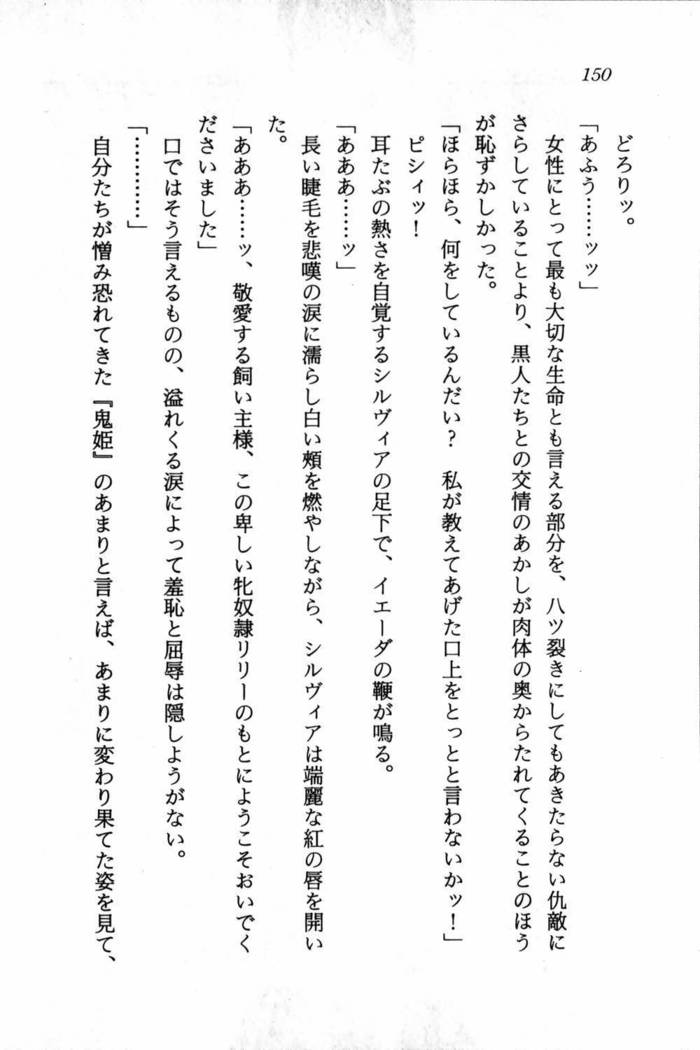 150
どろりッ。
「あふう……ッッ」
女性にとって最も大切な生命とも言える部分を、八ツ裂きにしてもあきたらない仇敵に
さらしていることより、黒人たちとの交情のあかしが肉体の奥からたれてくることのほう
が恥ずかしかった。
「ほらほら、何をしているんだい？　私が教えてあげた口上をとっとと言わないかッ！」
ピシィッ！
耳たぶの熱さを自覚するシルヴィアの足下で、イエーダの鞭が鳴る。
「あああ……ッ」
長い睫毛を悲嘆の涙に濡らし白い頰を燃やしながら、シルヴィアは端麗な紅の唇を開い
た。
「あああ……ッ、敬愛する飼い主様、この卑しい牝奴隷リリーのもとにようこそおいでく
ださいました」
口ではそう言えるものの、溢れくる涙によって羞恥と屈辱は隠しようがない。
「…………」
自分たちが憎み恐れてきた『鬼姫』のあまりと言えば、あまりに変わり果てた姿を見て、